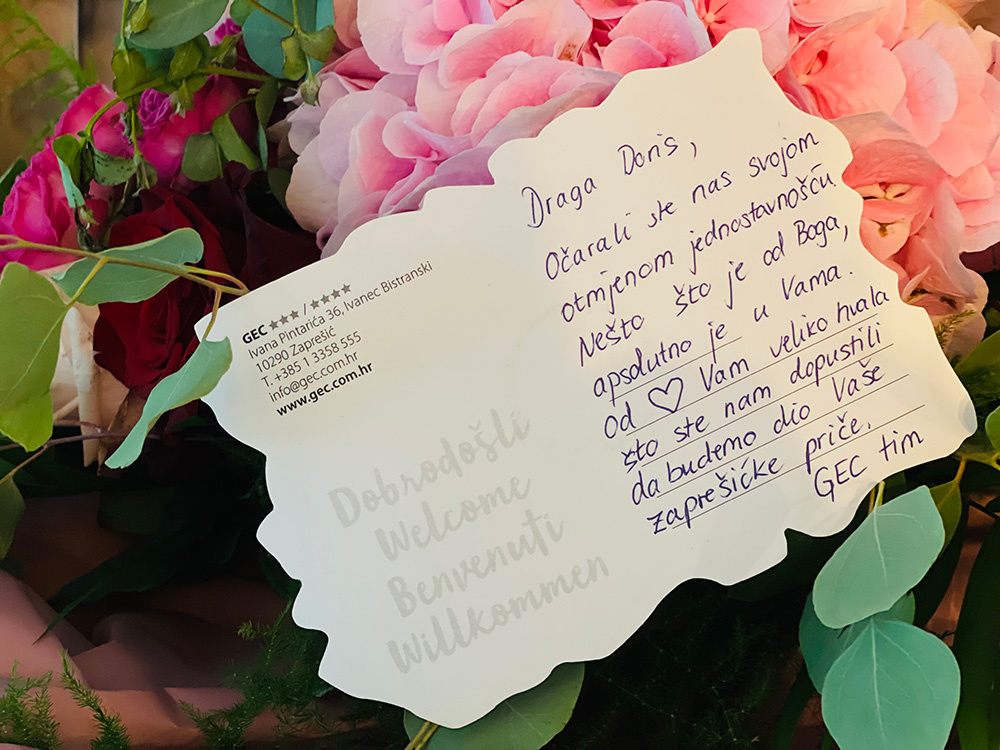 GEC ★★★ / ★★★★
Ivana Pintarića 36, Ivanec Bistranski
10290 Zaprešić
T. +385 1 3358 555
info@gec.com.hr
www.gec.com.hr
Dobrodošli
Welcome
Benvenuti
Willkommen
Draga Doris,
Očarali ste nas svojom
otmjenom jednostavnošću.
Nešto što je od Boga,
apsolutno je u Vama.
Od ♡ Vam veliko hvala
što ste nam dopustili
da budemo dio Vaše
zaprešićke priče.
GEC tim